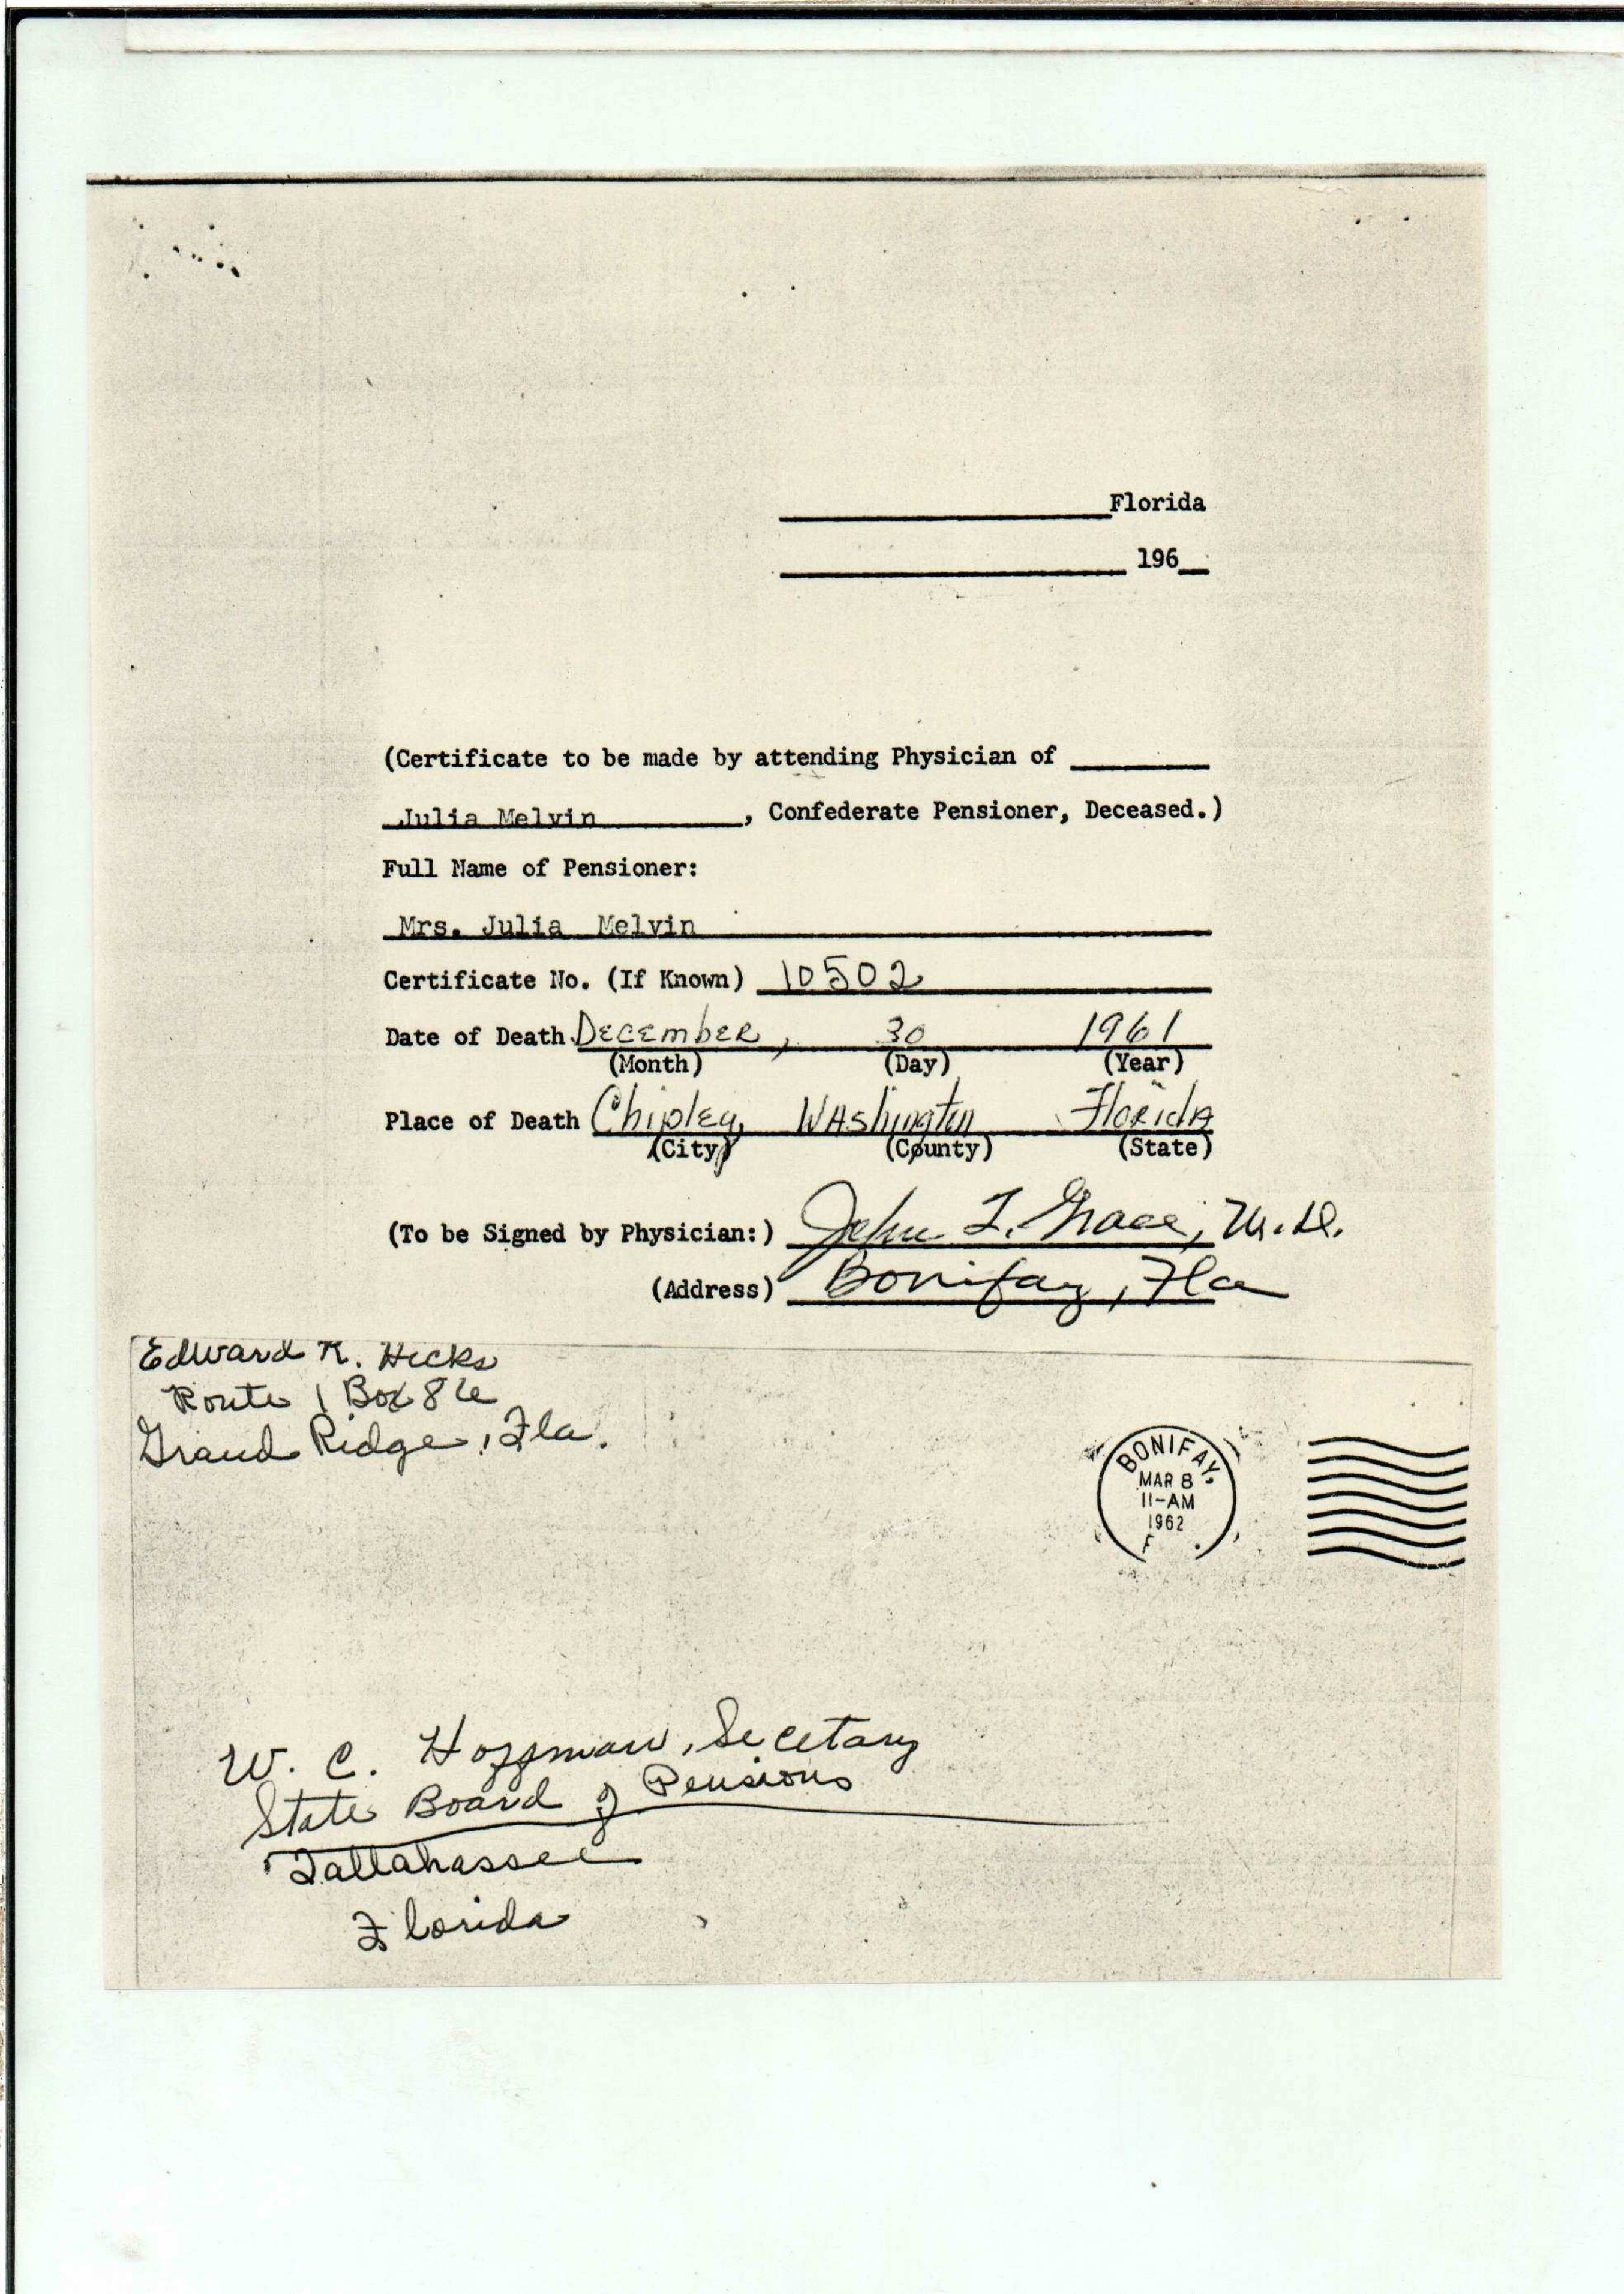 Florida
196
(Certificate to be made by attending Physician of
Julia Melvin, Confederate Pensioner, Deceased.)
Full Name of Pensioner:
Mrs. Julia Melvin
Certificate No. (If Known) 10502
Date of Death December, 30 1961
(Month) (Day) (Year)
Place of Death Chipley, Washington Florida
(City) (County) (State)
(To be Signed by Physician:) John I. Grace, M.D.
(Address) Bonifay, Fla
Edward K. Hicks
Route 1 Box 86
Grand Ridge, Fla.
BONIFAY,
MAR 8
11-AM
1962
F
W. C. Hoffman, Secetary
State Board of Pensions
Tallahassee
Florida